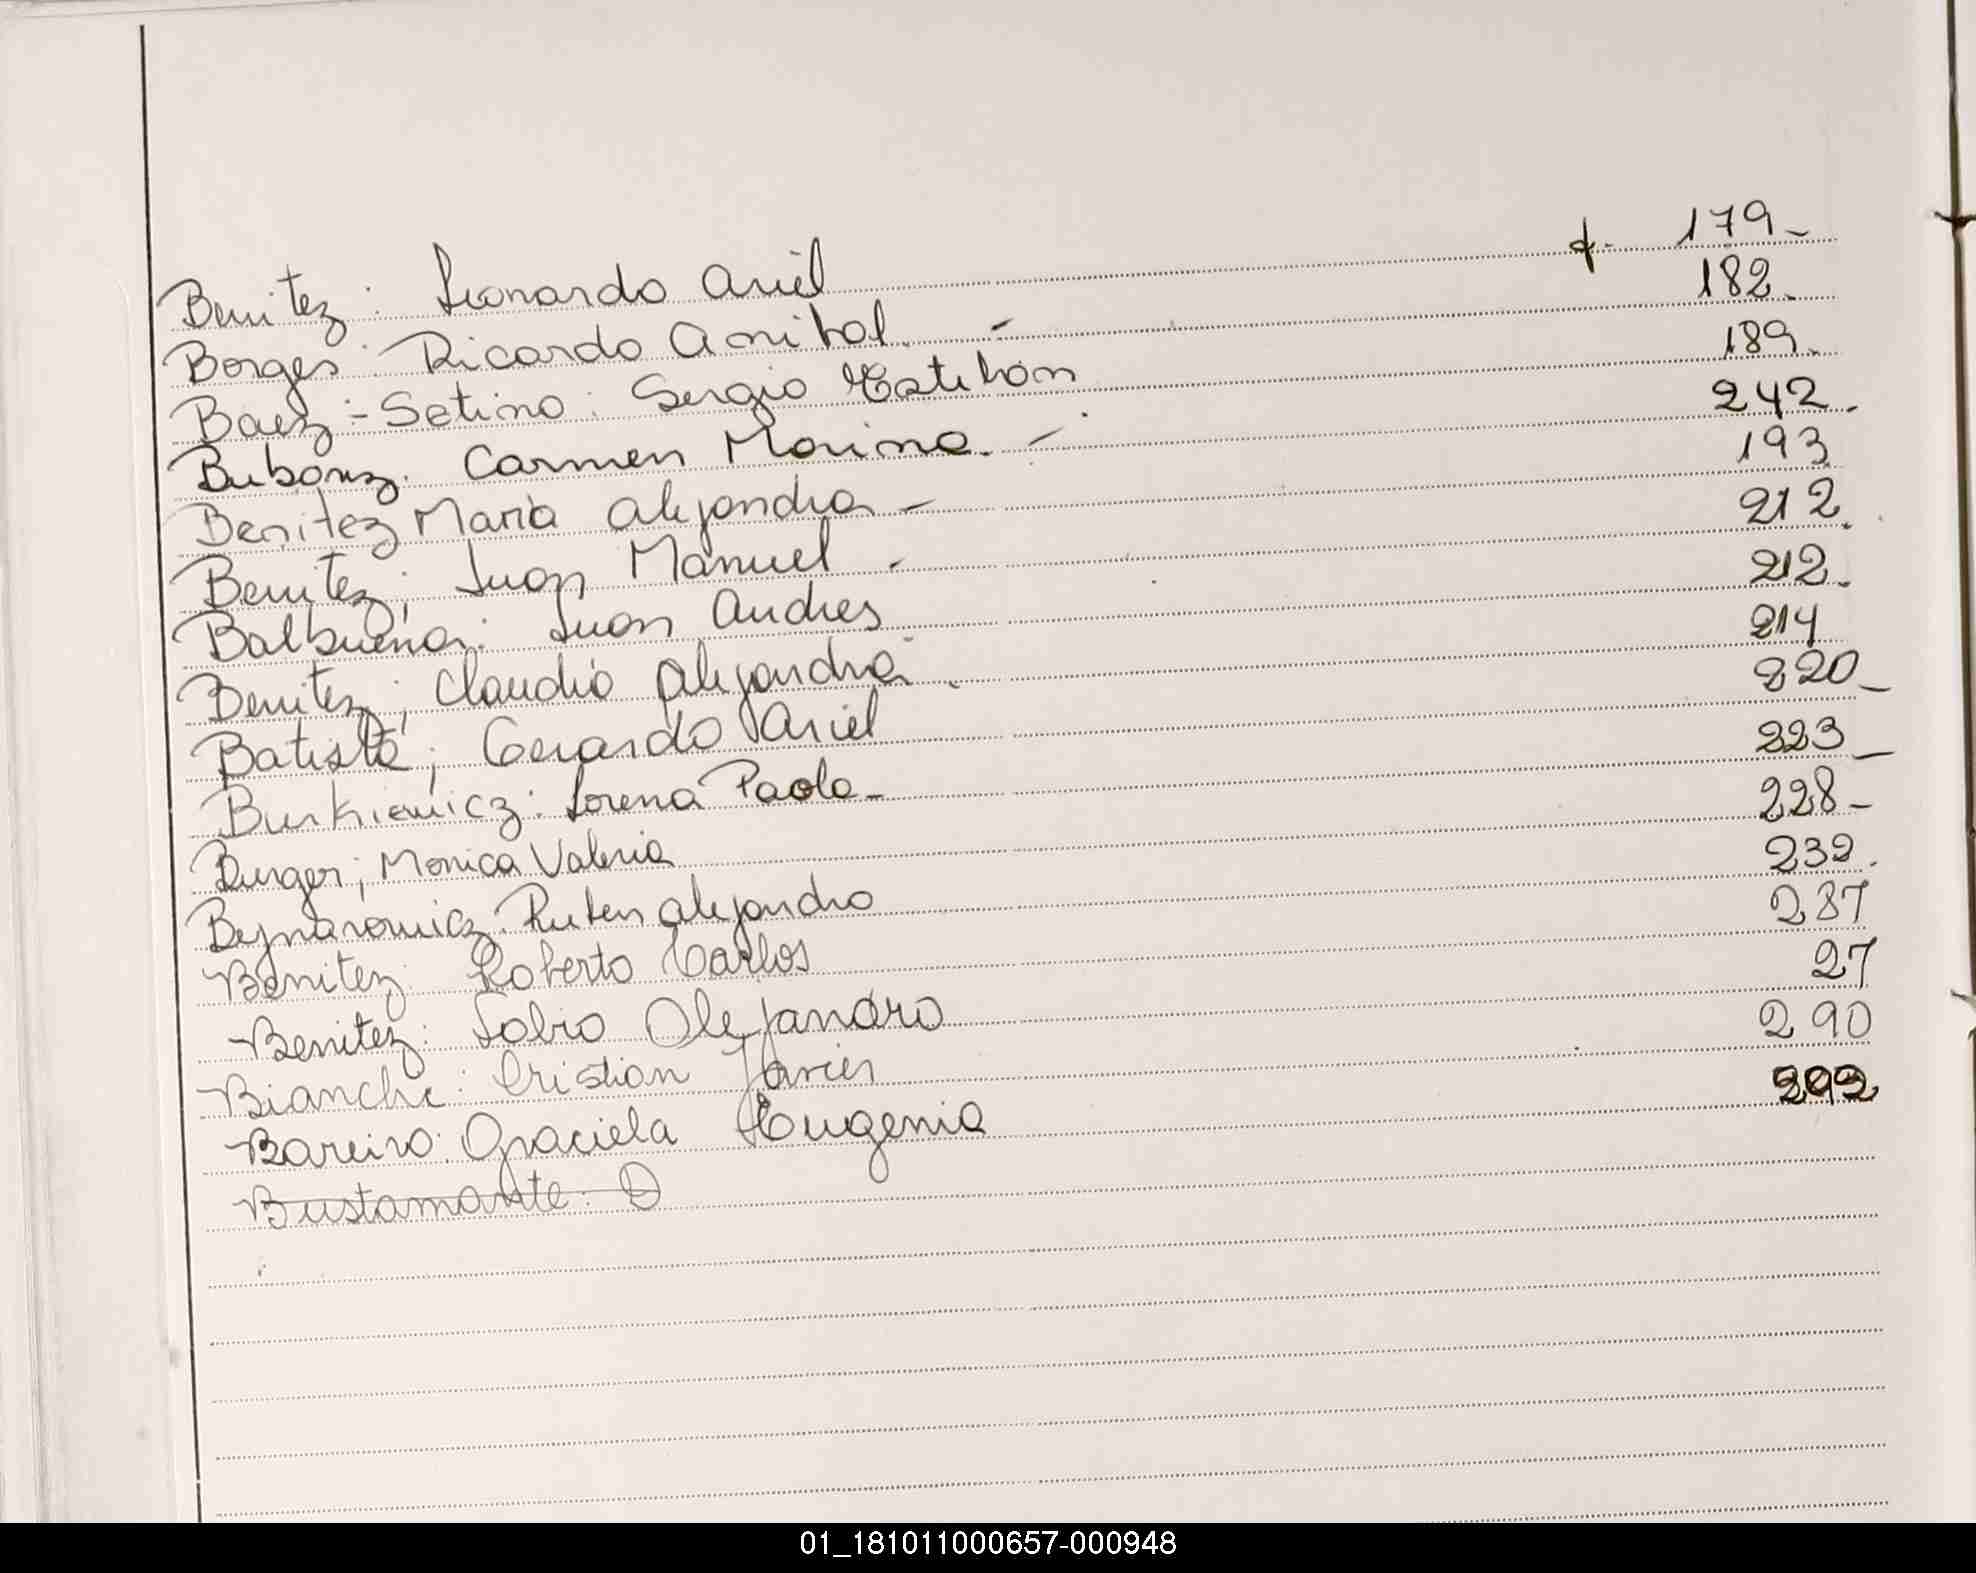 Benitez: Leonardo Ariel f. 179-
Borges: Ricardo Anibal. - 182.
Baez - Setino: Sergio Esteban 189.
Carmen Marina. - 242.
Benitez Maria Alejandra - 193
Benitez; Juan Manuel - 212.
Balbuena: Juan Andres 212.
Benitez; Claudia Alejandra. 214
Batista; Gerardo Ariel 220-
Burkiewicz: Lorena Paola- 223-
Burger; Monica Valeria 228-
Bejnarowicz. Ruben Alejandro 232.
Benitez. Roberto Carlos 287
Benitez: Fabio Alejandro 27
Bianchi: Cristian Javier 290
Bareiro: Graciela Eugenia 292
Bustamante: D
01_181011000657-000948